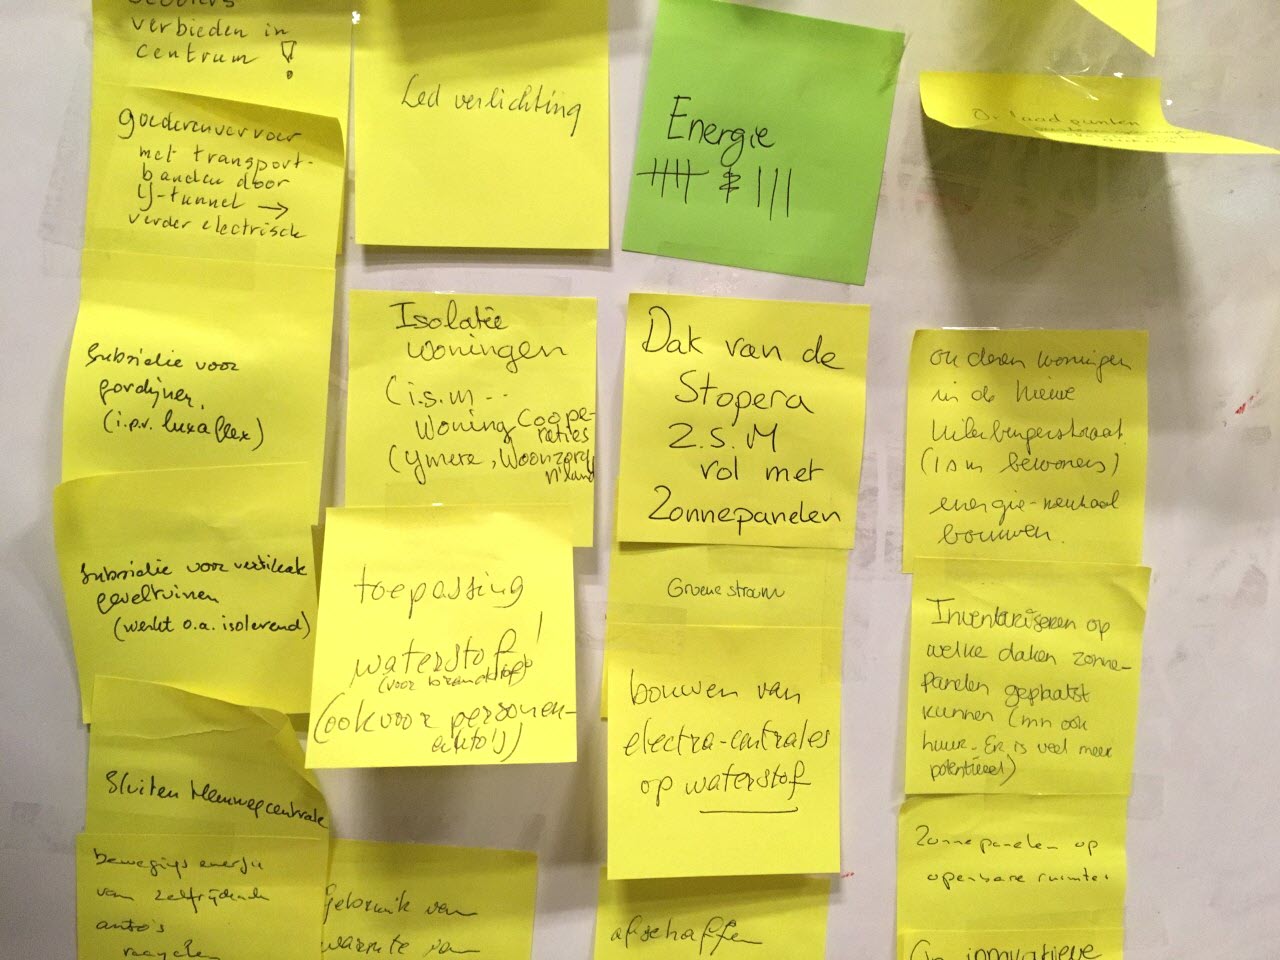 verbieden in
centrum !
goederenvervoer
met transport-
banden door
IJ-tunnel →
verder electrisch
Subsidie voor
gordijnen.
(i.p.v. luxaflex)
Subsidie voor vertikale
geveltuinen
(werkt o.a. isolerend)
Sluiten Hemwegcentrale
van zelfrijdende
auto's
recyclen
Led verlichting
Isolatie
woningen
(i.s.m..
Woning Coope-
raties
(Ymere, Woonzorg
n'land
toepassing
waterstof!
(voor brandstof)
(ook voor personen-
auto's)
Gebruik van
warmte van
Energie
Dak van de
Stopera
Z.S.M
vol met
Zonnepanelen
Groene stroom
bouwen van
electra-centrales
op waterstof
afschaffen
laad punten
woningen
in de Nieuwe
Uilenburgerstraat.
(ism bewoners)
energie-neutraal
bouwen.
Inventariseren op
welke daken zonne-
panelen geplaatst
kunnen (mn ook
huur. Er is veel meer
potentieel)
Zonnepanelen op
openbare ruimtes
innovatieve